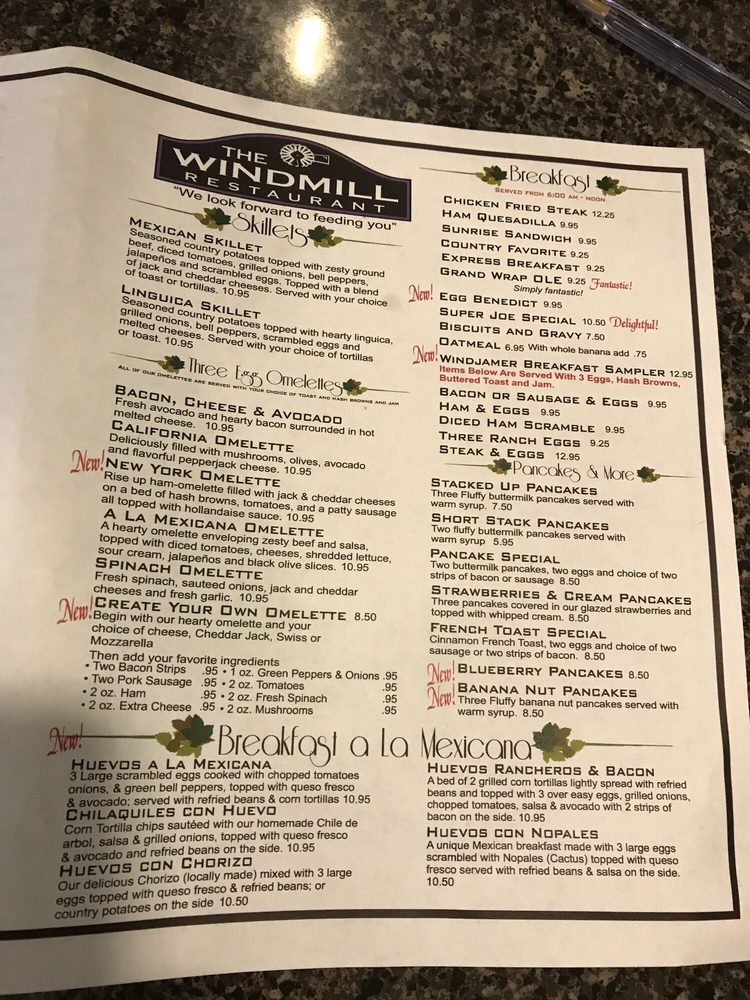 THE
WINDMILL
RESTAURANT
"We look forward to feeding you"
Skillets
MEXICAN SKILLET
Seasoned country potatoes topped with zesty ground
beef, diced tomatoes, grilled onions, bell peppers,
jalapeños and scrambled eggs. Topped with a blend
of jack and cheddar cheeses. Served with your choice
of toast or tortillas. 10.95
LINGUICA SKILLET
Seasoned country potatoes topped with hearty linguica,
grilled onions, bell peppers, scrambled eggs and
melted cheeses. Served with your choice of tortillas
or toast. 10.95
Three Egg Omelettes
ALL OF OUR OMELETTES ARE SERVED WITH YOUR CHOICE OF TOAST AND HASH BROWNS AND JAM
BACON, CHEESE & AVOCADO
Fresh avocado and hearty bacon surrounded in hot
melted cheese. 10.95
CALIFORNIA OMELETTE
Deliciously filled with mushrooms, olives, avocado
and flavorful pepperjack cheese. 10.95
New! NEW YORK OMELETTE
Rise up ham-omelette filled with jack & cheddar cheeses
on a bed of hash browns, tomatoes, and a patty sausage
all topped with hollandaise sauce. 10.95
A LA MEXICANA OMELETTE
A hearty omelette enveloping zesty beef and salsa,
topped with diced tomatoes, cheeses, shredded lettuce,
sour cream, jalapeños and black olive slices. 10.95
SPINACH OMELETTE
Fresh spinach, sauteed onions, jack and cheddar
cheeses and fresh garlic. 10.95
New! CREATE YOUR OWN OMELETTE 8.50
Begin with our hearty omelette and your
choice of cheese, Cheddar Jack, Swiss or
Mozzarella
Then add your favorite ingredients
• Two Bacon Strips .95 • 1 oz. Green Peppers & Onions .95
• Two Pork Sausage .95 • 2 oz. Tomatoes .95
• 2 oz. Ham .95 • 2 oz. Fresh Spinach .95
• 2 oz. Extra Cheese .95 • 2 oz. Mushrooms .95
Breakfast
SERVED FROM 6:00 AM - NOON
CHICKEN FRIED STEAK 12.25
HAM QUESADILLA 9.95
SUNRISE SANDWICH 9.95
COUNTRY FAVORITE 9.25
EXPRESS BREAKFAST 9.25
GRAND WRAP OLE 9.25 Fantastic!
Simply fantastic!
New! EGG BENEDICT 9.95
SUPER JOE SPECIAL 10.50 Delightful!
BISCUITS AND GRAVY 7.50
OATMEAL 6.95 With whole banana add .75
New! WINDJAMER BREAKFAST SAMPLER 12.95
Items Below Are Served With 3 Eggs, Hash Browns,
Buttered Toast and Jam.
BACON OR SAUSAGE & EGGS 9.95
HAM & EGGS 9.95
DICED HAM SCRAMBLE 9.95
THREE RANCH EGGS 9.25
STEAK & EGGS 12.95
Pancakes & More
STACKED UP PANCAKES
Three Fluffy buttermilk pancakes served with
warm syrup. 7.50
SHORT STACK PANCAKES
Two fluffy buttermilk pancakes served with
warm syrup 5.95
PANCAKE SPECIAL
Two buttermilk pancakes, two eggs and choice of two
strips of bacon or sausage 8.50
STRAWBERRIES & CREAM PANCAKES
Three pancakes covered in our glazed strawberries and
topped with whipped cream. 8.50
FRENCH TOAST SPECIAL
Cinnamon French Toast, two eggs and choice of two
sausage or two strips of bacon. 8.50
New! BLUEBERRY PANCAKES 8.50
New! BANANA NUT PANCAKES
Three Fluffy banana nut pancakes served with
warm syrup. 8.50
New! Breakfast a La Mexicana
HUEVOS A LA MEXICANA
3 Large scrambled eggs cooked with chopped tomatoes
onions, & green bell peppers, topped with queso fresco
& avocado; served with refried beans & corn tortillas 10.95
CHILAQUILES CON HUEVO
Corn Tortilla chips sautéed with our homemade Chile de
arbol, salsa & grilled onions, topped with queso fresco
& avocado and refried beans on the side. 10.95
HUEVOS CON CHORIZO
Our delicious Chorizo (locally made) mixed with 3 large
eggs topped with queso fresco & refried beans; or
country potatoes on the side 10.50
HUEVOS RANCHEROS & BACON
A bed of 2 grilled corn tortillas lightly spread with refried
beans and topped with 3 over easy eggs, grilled onions,
chopped tomatoes, salsa & avocado with 2 strips of
bacon on the side. 10.95
HUEVOS CON NOPALES
A unique Mexican breakfast made with 3 large eggs
scrambled with Nopales (Cactus) topped with queso
fresco served with refried beans & salsa on the side.
10.50